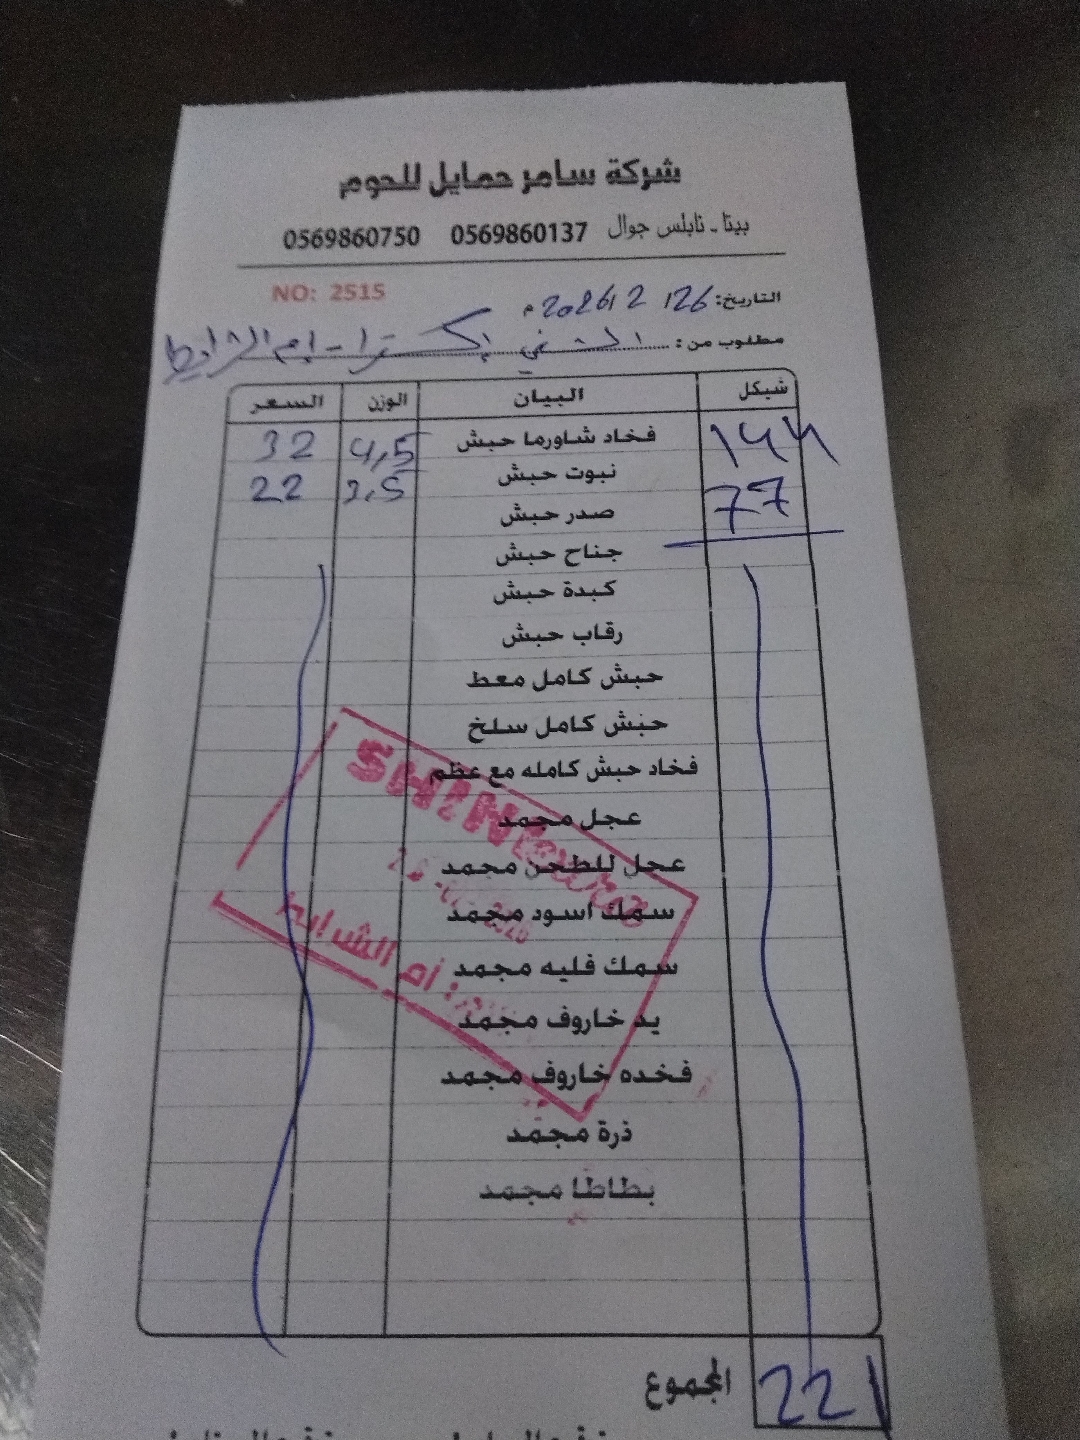 شركة سامر حمايل للحوم
بيتا - نابلس جوال 0569860137 0569860750
NO: 2515
التاريخ: 26/ 2 /2026م
مطلوب من: الشني إكسترا - إم الشرايط
شيكل البيان الوزن السعر
144 فخاد شاورما حبش 4,5 32
77 نبوت حبش 3,5 22
صدر حبش
جناح حبش
كبدة حبش
رقاب حبش
حبش كامل معط
حبش كامل سلخ
فخاد حبش كامله مع عظم
عجل مجمد
عجل للطحن مجمد
سمك اسود مجمد
سمك فليه مجمد
يد خاروف مجمد
فخده خاروف مجمد
ذرة مجمد
بطاطا مجمد
SHINI
أم الشرايط
المجموع 221